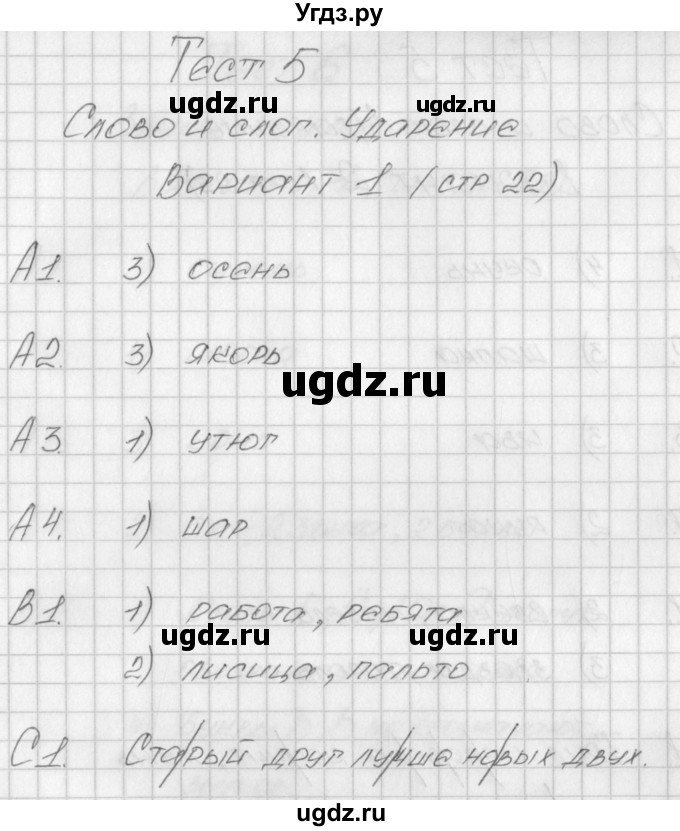 Угдз.ру
Тест 5
ugdz.ru ugdz.ru
Слово и слог. Ударение
Вариант 1 (стр 22)
А1. 3) осень
А2. 3) якорь
ugdz.ru
А3. 1) утюг
А4. 1) шар
В1. 1) работа, ребята
ugdz.ru ugdz.ru
2) лисица, пальто
С1. Ста/рый друг лу/чше но/вых двух.
ugdz.ru